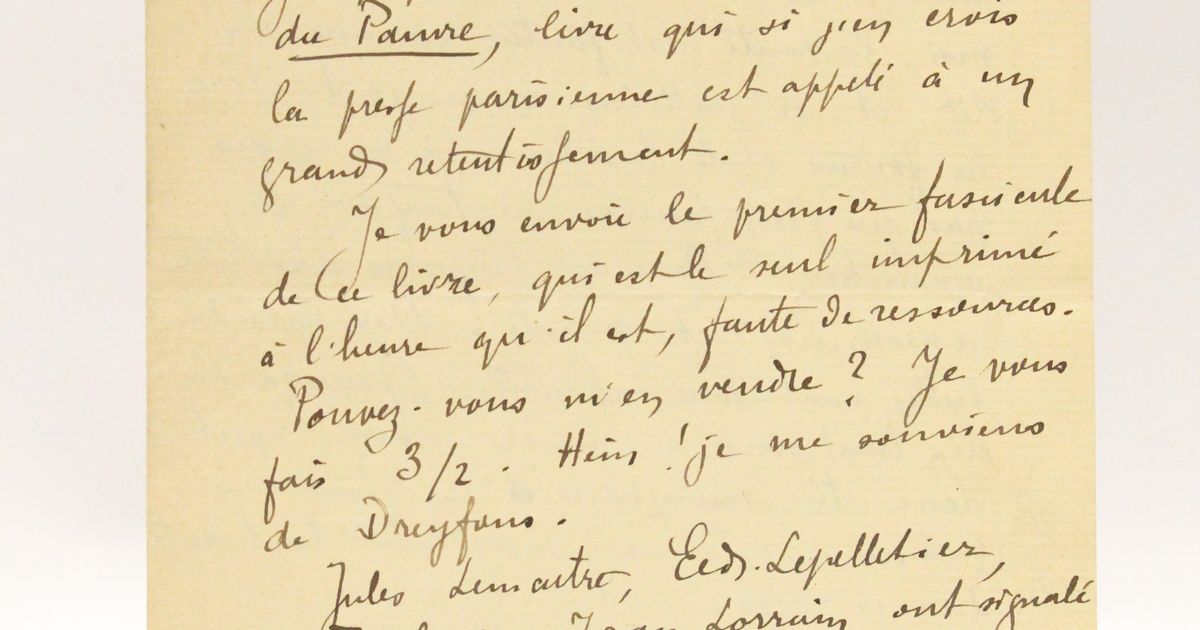 du Pauvre, livre qui si j'en crois
la presse parisienne est appelé à un
grand retentissement.
Je vous envoie le premier fascicule
de ce livre, qui est le seul imprimé
à l'heure qu'il est, faute de ressources.
Pouvez-vous m'en vendre ? Je vous
fais 3/2. Hein ! je me souviens
de Dreyfous.
Jules Lemaitre, Ed. Lepelletier,
Jean Lorrain ont signalé